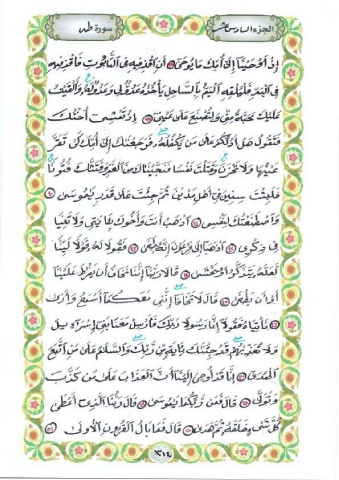 الجزء السادس عشر سورة طه
إذ أوحينا إلى أمك ما يوحى ٣٨ أن اقذفيه في التابوت فاقذفيه
في اليم فليلقه اليم بالساحل يأخذه عدو لي وعدو له وألقيت
عليك محبة مني ولتصنع على عيني ٣٩ إذ تمشي أختك
فتقول هل أدلكم على من يكفله فرجعناك إلى أمك كي تقر
عينها ولا تحزن وقتلت نفسا فنجيناك من الغم وفتناك فتونا
فلبثت سنين في أهل مدين ثم جئت على قدر يا موسى ٤٠
واصطنعتك لنفسي ٤١ اذهب أنت وأخوك بآياتي ولا تنيا
في ذكري ٤٢ اذهبا إلى فرعون إنه طغى ٤٣ فقولا له قولا لينا
لعله يتذكر أو يخشى ٤٤ قالا ربنا إننا نخاف أن يفرط علينا
أو أن يطغى ٤٥ قال لا تخافا إنني معكما أسمع وأرى
٤٦ فأتياه فقولا إنا رسولا ربك فأرسل معنا بني إسراءيل
ولا تعذبهم قد جئناك بآية من ربك والسلام على من اتبع
الهدى ٤٧ إنا قد أوحي إلينا أن العذاب على من كذب
وتولى ٤٨ قال فمن ربكما يا موسى ٤٩ قال ربنا الذي أعطى
كل شيء خلقه ثم هدى ٥٠ قال فما بال القرون الأولى ٥١
٣١٤